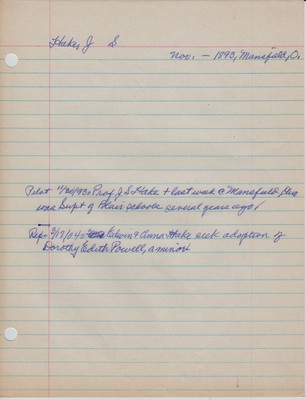 Hake, J S
Nov. - 1893, Mansfield, O.
Pilot 11/30/93: Prof. J. S. Hake + last week @ Mansfield, 
was Supt of Blair schools several years ago/
Rep: 9/17/04: Edwin & Anna Hake seek adoption of
Dorothy Edith Powell, a minor